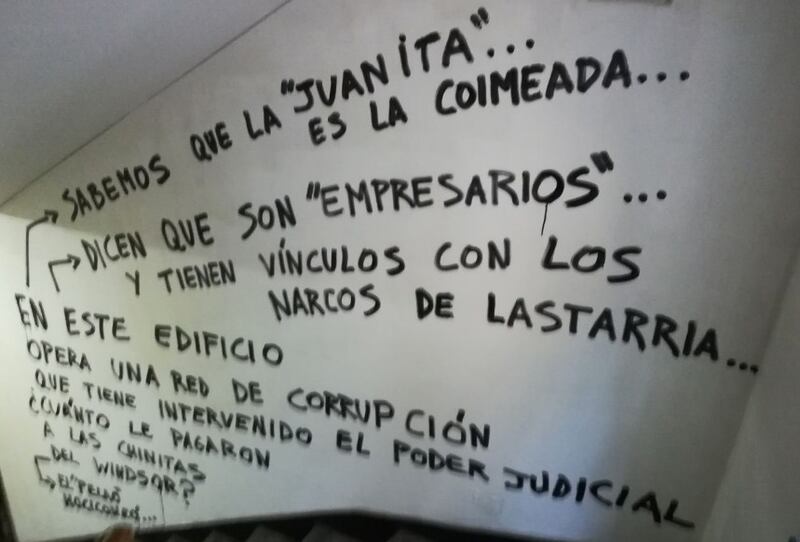 SABEMOS QUE LA "JUANITA"...
ES LA COIMEADA...
DICEN QUE SON "EMPRESARIOS"...
Y TIENEN VÍNCULOS CON LOS
NARCOS DE LASTARRIA...
EN ESTE EDIFICIO
OPERA UNA RED DE CORRUPCIÓN
QUE TIENE INTERVENIDO EL PODER JUDICIAL
¿CUÁNTO LE PAGARON
A LAS CHINITAS
DEL WINDSOR?
EL